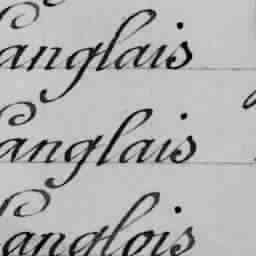 Langlais
Langlais
Langlois